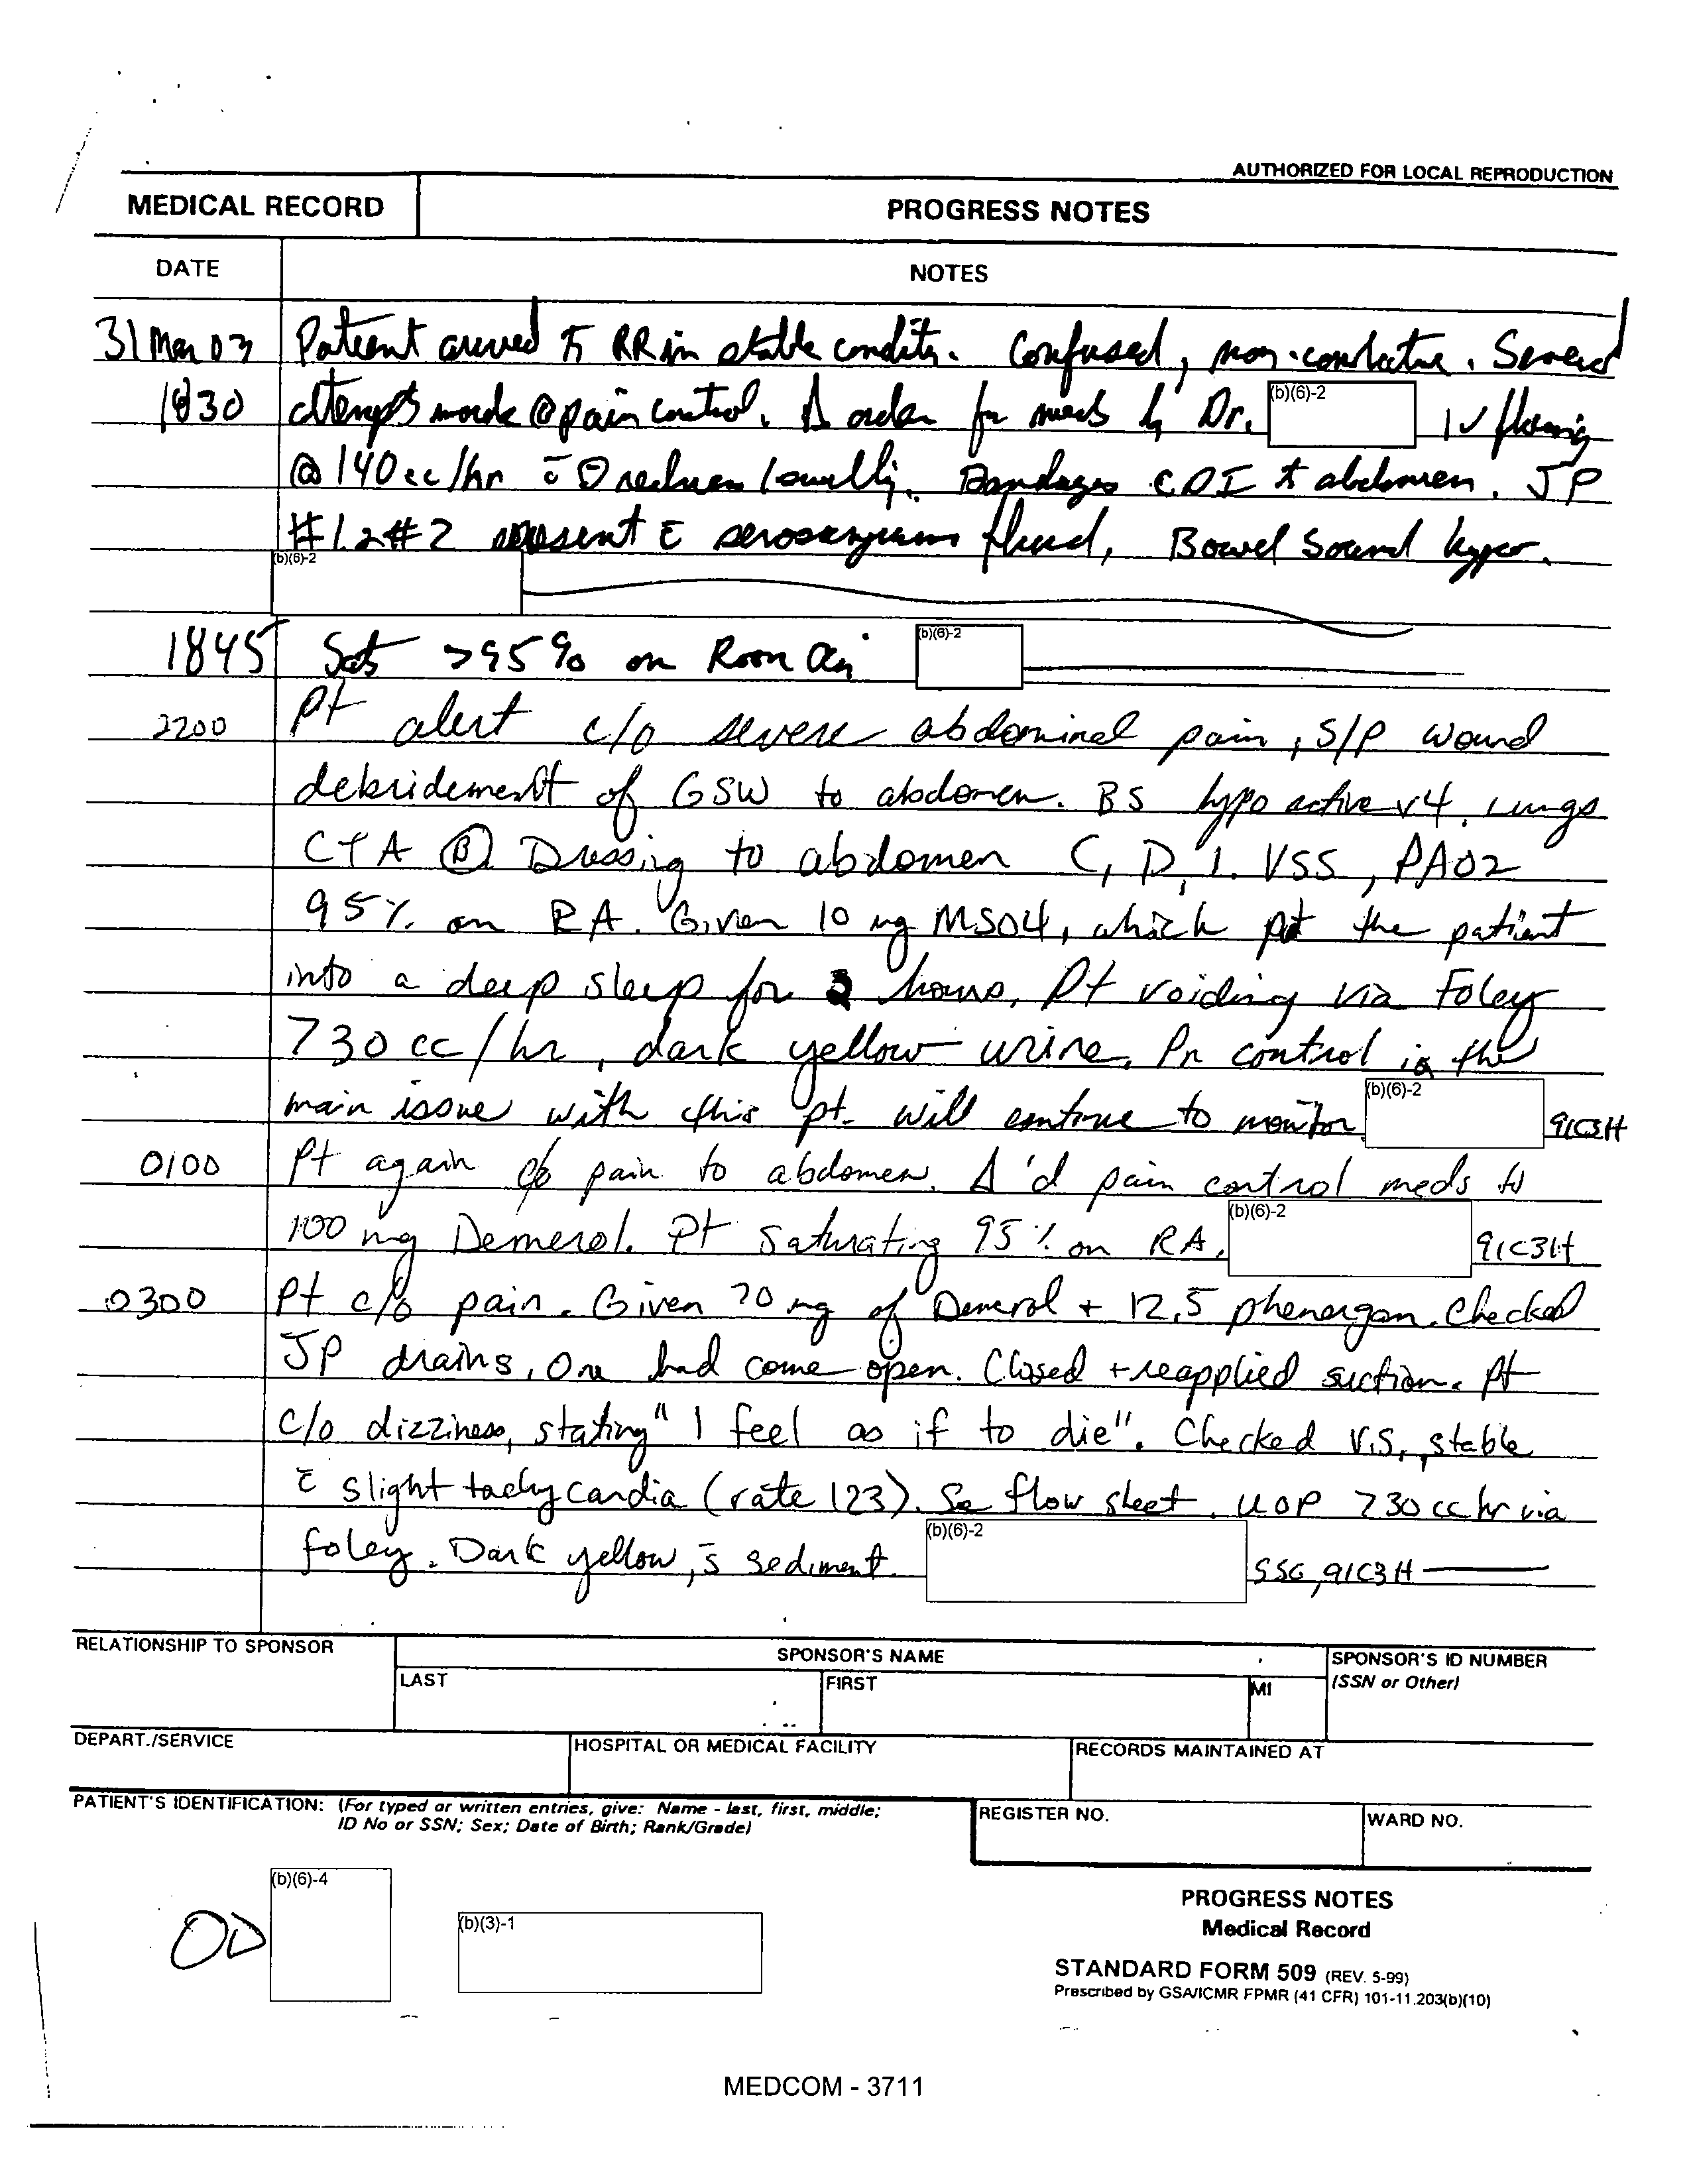 AUTHORIZED FOR LOCAL REPRODUCTION
MEDICAL RECORD PROGRESS NOTES
DATE NOTES
31 Mar 03 Patient arrived to RR in stable condit. Confused, . Several
1830 attempts made @ pain control. Δ order for meds by Dr. (b)(6)-2 IV flowing
@ 140 cc/hr c̄ . Bandages CDI to abdomen. JP
#1 & #2 present c̄ fluid, Bowel Sound hyper.
(b)(6)-2
1845 Sats >95% on Room Air (b)(6)-2
2200 Pt alert c/o severe abdominal pain, S/P wound
debridement of GSW to abdomen. BS hypo active x4. Lungs
CTA Ⓑ Dressing to abdomen C, D, I. VSS, PAO2
95% on RA. Given 10 mg MSO4, which put the patient
into a deep sleep for hours. Pt voiding via Foley
730 cc/hr, dark yellow urine. Pn control is the
main issue with this pt. will continue to monitor. (b)(6)-2 91C3H
0100 Pt again c/o pain to abdomen. Δ'd pain control meds to
100 mg Demerol. Pt Saturating 95% on RA. (b)(6)-2 91C3H
0300 Pt c/o pain. Given mg of Demerol + 12.5 phenergan. Checked
JP drains, One had come open. Closed + reapplied suction. Pt
c/o dizziness, stating "I feel as if to die". Checked V.S., stable
c̄ slight tachycardia (rate 123). See flow sheet. UOP 730 cc hr via
foley. Dark yellow, s̄ sediment. (b)(6)-2 SSG, 91C3H
RELATIONSHIP TO SPONSOR SPONSOR'S NAME SPONSOR'S ID NUMBER
LAST FIRST MI (SSN or Other)
DEPART./SERVICE HOSPITAL OR MEDICAL FACILITY RECORDS MAINTAINED AT
PATIENT'S IDENTIFICATION: (For typed or written entries, give: Name - last, first, middle; REGISTER NO. WARD NO.
ID No or SSN; Sex; Date of Birth; Rank/Grade)
(b)(6)-4
(b)(3)-1
PROGRESS NOTES
Medical Record
STANDARD FORM 509 (REV. 5-99)
Prescribed by GSA/ICMR FPMR (41 CFR) 101-11.203(b)(10)
MEDCOM - 3711